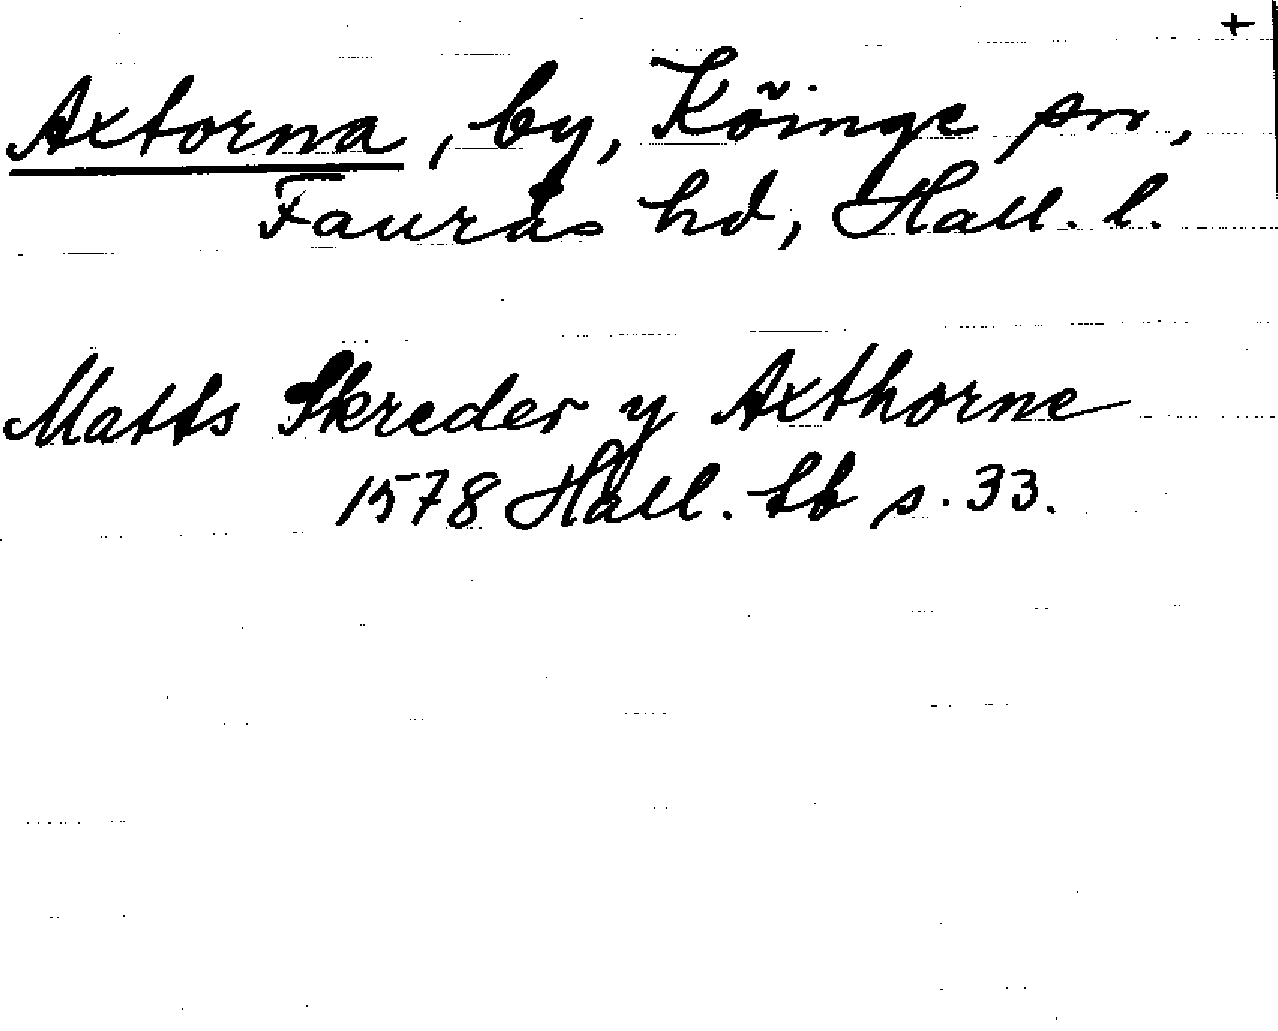 +
Axtorna, by, Köinge sn,
Faurås hd, Hall. l.
Matts Skreder y Axthorne
1578 Hall. tb s. 33.